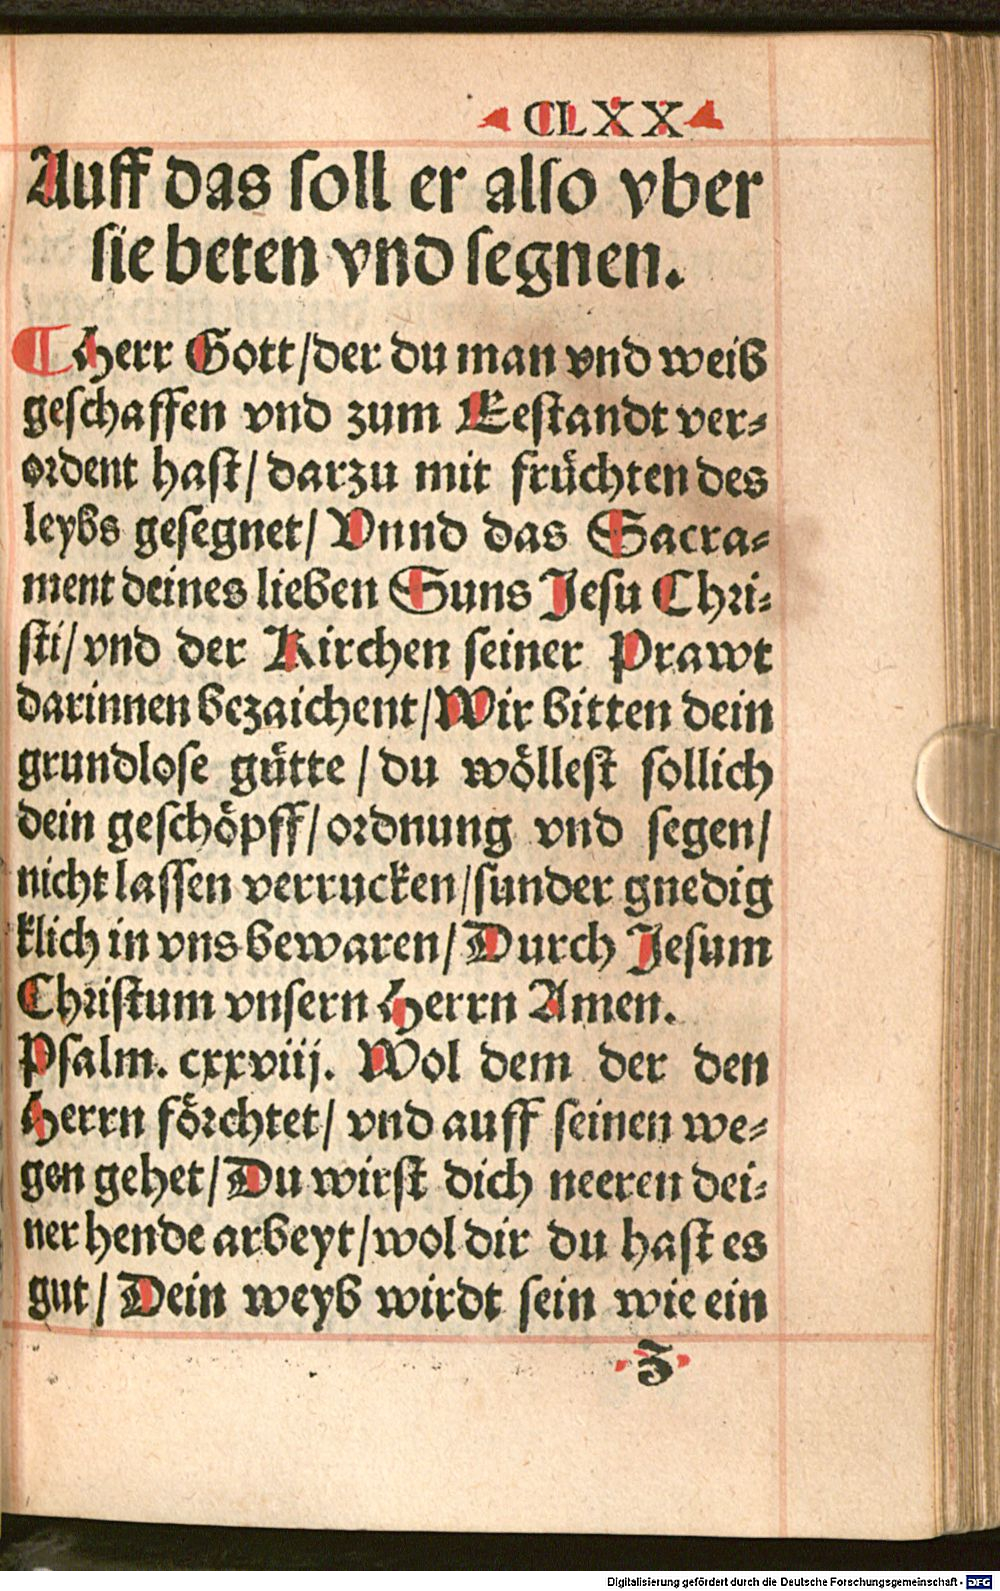 CLXX
Auff das soll er also vber
sie beten vnd segnen.
Herr Gott/der du man vnd weib
geschaffen vnd zum Eestandt ver-
ordent hast/ darzu mit früchten des
leybs gesegnet/ Vnnd das Sacra-
ment deines lieben Suns Jesu Chri-
sti/ vnd der Kirchen seiner Prawt
darinnen bezaichent/Wir bitten dein
grundlose gütte / du wöllest sollich
dein geschöpff/ ordnung vnd segen/
nicht lassen verrucken/sunder gnedig
klich in vns bewaren/ Durch Jesum
Christum vnsern Herrn Amen.
Psalm. cxxviij. Wol dem der den
Herrn förchtet/ vnd auff seinen we-
gen gehet/ Du wirst dich neeren dei-
ner hende arbeyt/wol dir du hast es
gut/ Dein weyb wirdt sein wie ein
Z
Digitalisierung gefördert durch die Deutsche Forschungsgemeinschaft - DFG